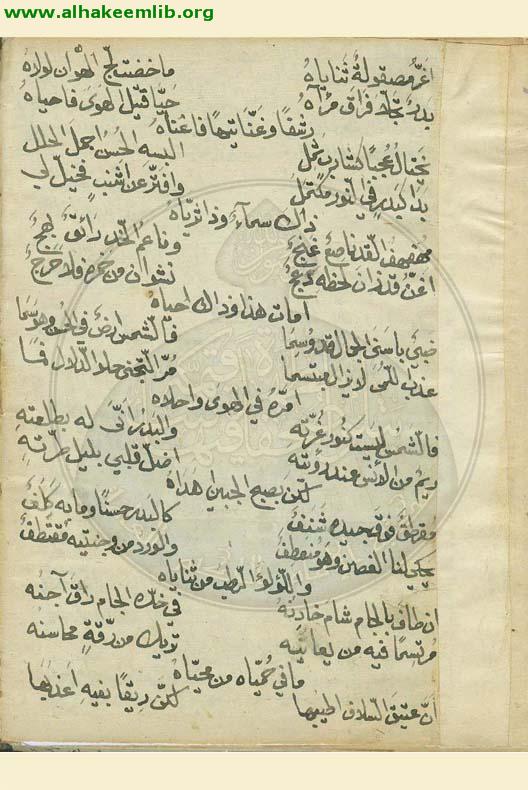 www.alhakeemlib.org
اغر مصقولة ثناياه ما خضت لج الهوان لولاه
بدر تجلا فراق مرآه حيا قتيل الهوى فاحياه
رشفا وغنا تيها فاعناه
يختال عجبا كشارب ثمل البسه الحسن اجمل الحلل
بدا كبدر في النور مكتمل وافتر عن اشنب فخيل لي
ذاك سماء وذا ثرياه
مهفهف القد ناصع غنج وناعم الخد رائق بهج
اغن قد زان لحظه دعج نشوان من خمره فلا حرج
امات هذا وذاك احياه
ظبي باسنى الجمال قد وسما فالشمس ارض في الحسن وهو سما
عذب اللمى لا يزال مبتسما مر التجني حلا الدلال فما
امره في الهوى واحلاه
فالشمس ليست كنور غرته والبدر انى له بطلعته
ريم من الانس عند رؤيته اضل قلبي بليل طرته
لكن بصبح الجبين اهداه
مقرطق فوق جيده شنف كالبدر حسنا وما به كلف
يحكي لنا الغصن وهو منعطف والورد من وجنتيه مقتطف
واللؤلؤ الرطب من ثناياه
ان طاف بالجام شام خادنه في خده الجام راق آجنه
مرتسما فيه من يعاينه تريك من رقة محاسنه
ما في حمياه من محياه
ان عتيق السلاف اطيبها لكن ريقا بفيه اعذبها